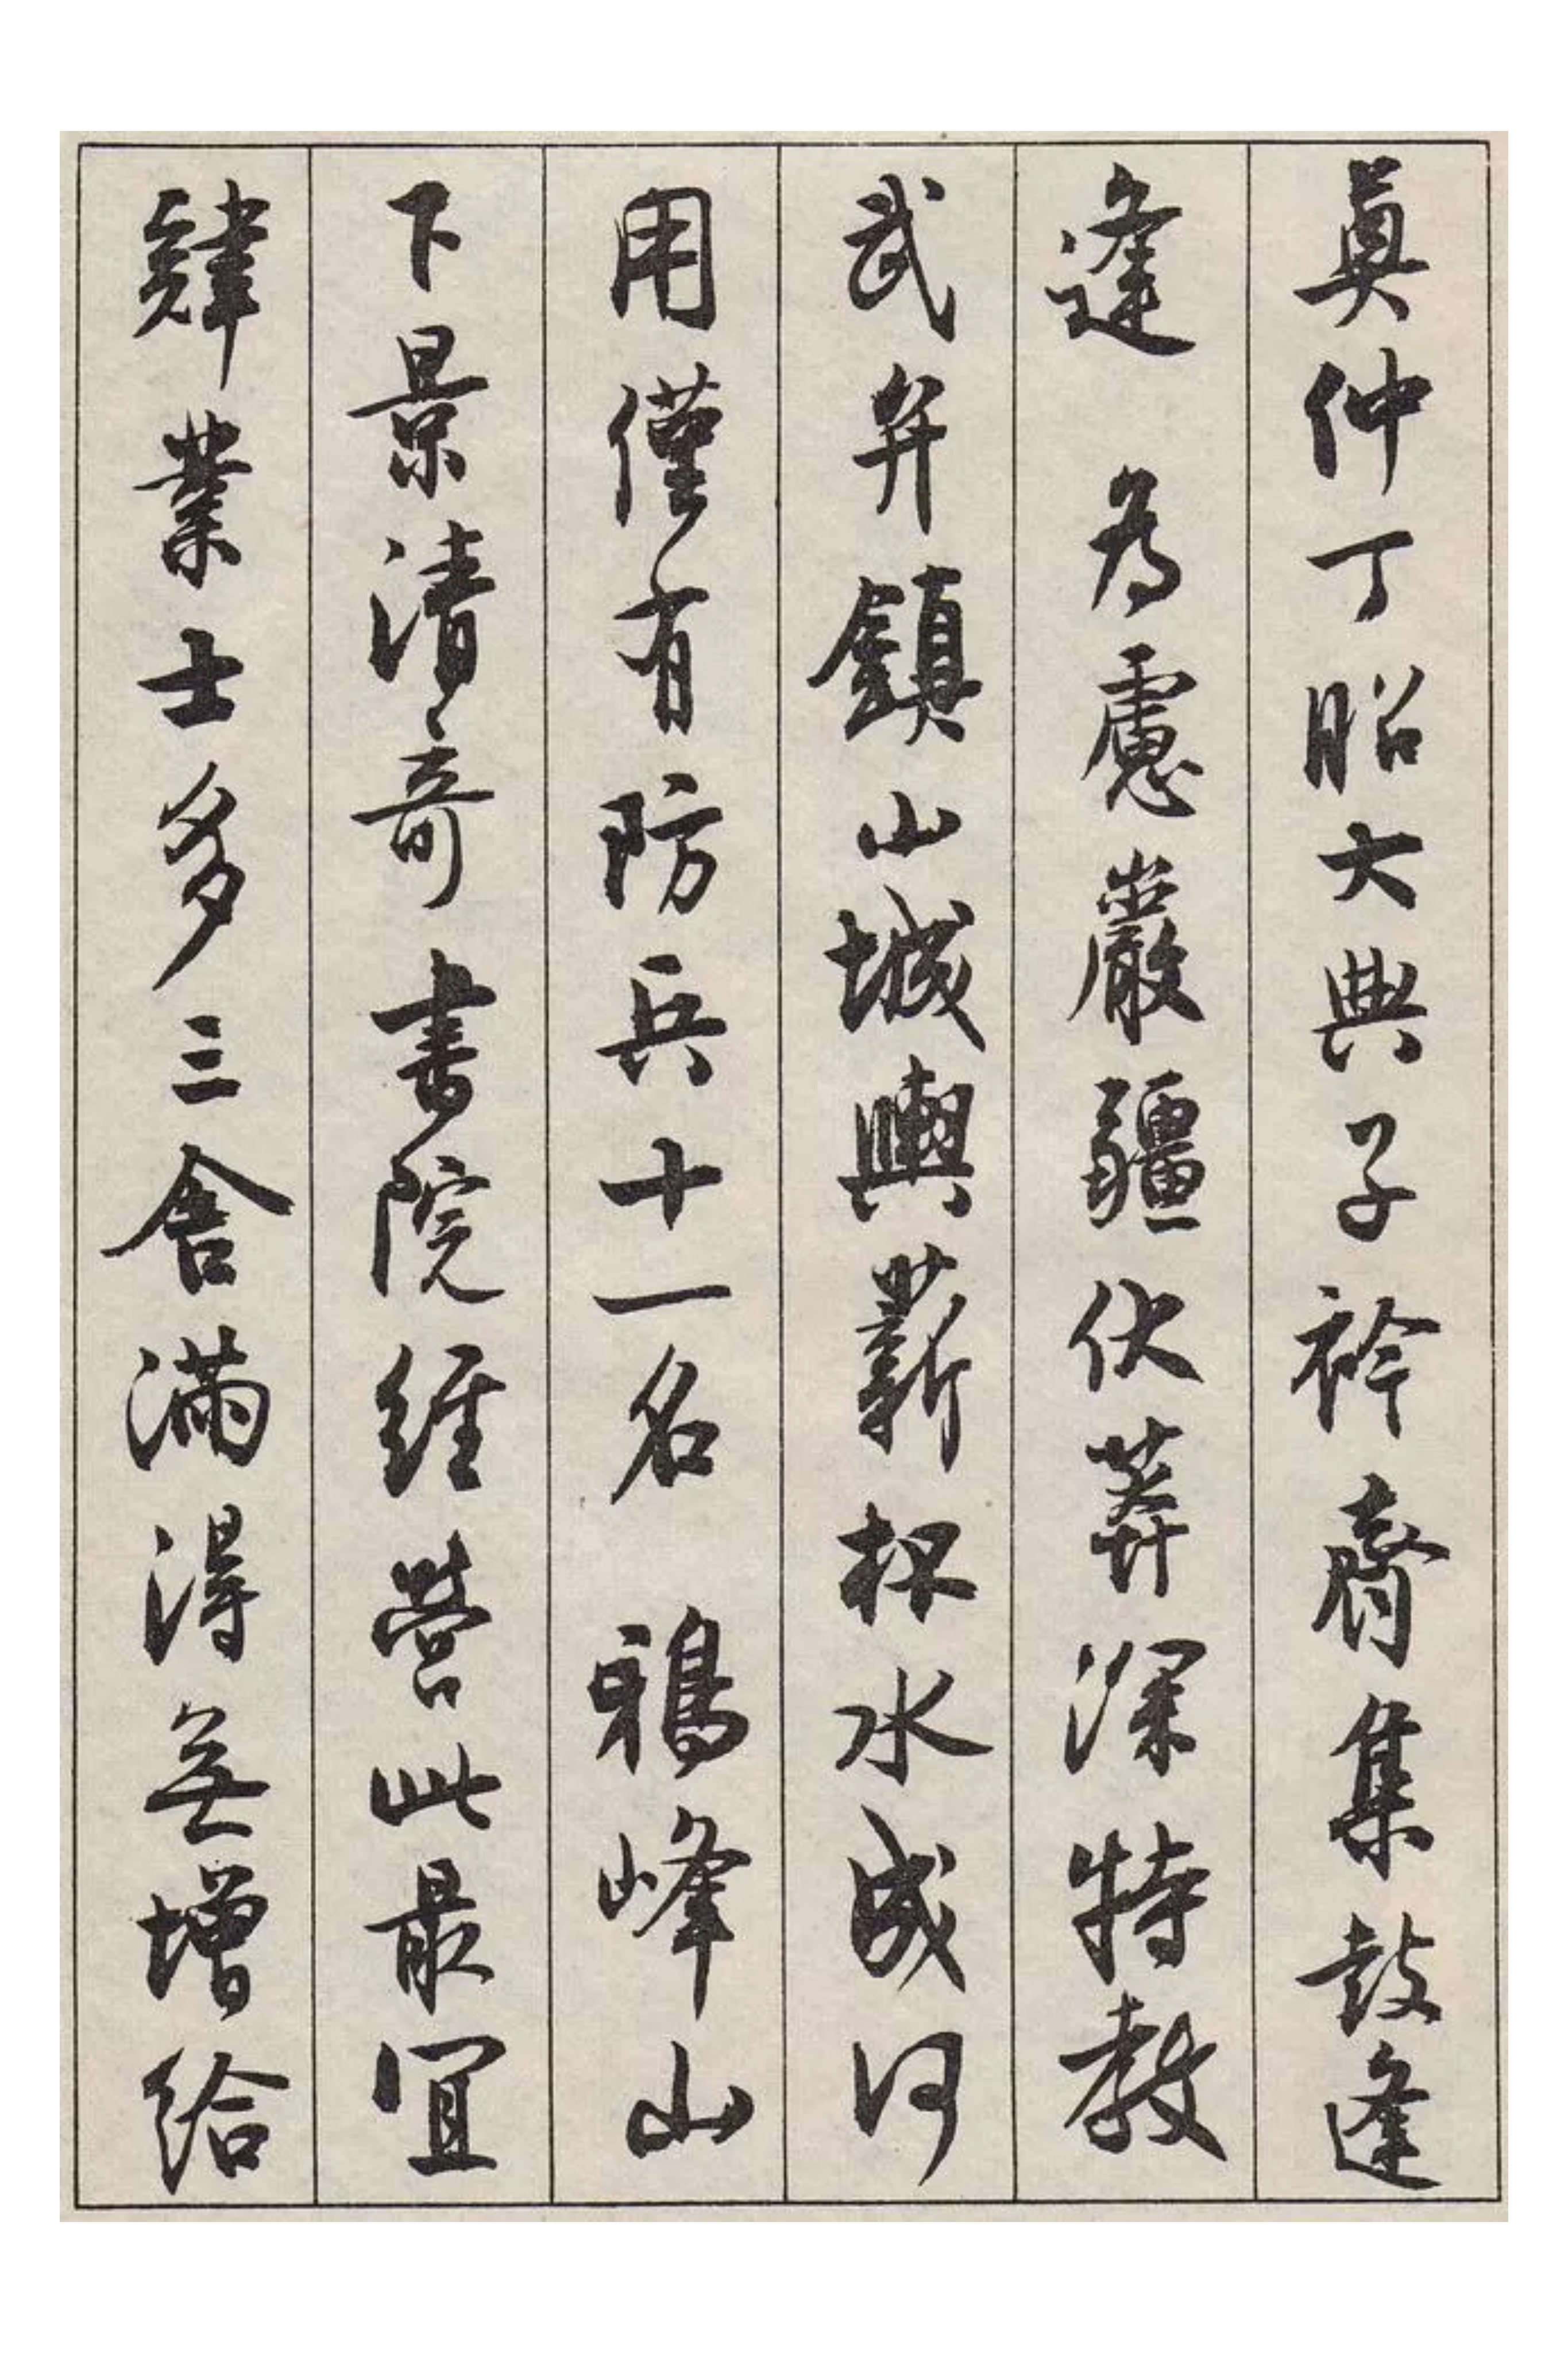 奠仲丁昭大典子衿齊集鼓逢
逢 為慮巖疆伏莽深特教
武弁鎮山城輿薪杯水成何
用僅有防兵十一名 鴉峰山
下景清奇書院經營此最宜
肄業士多三舍滿得無增給